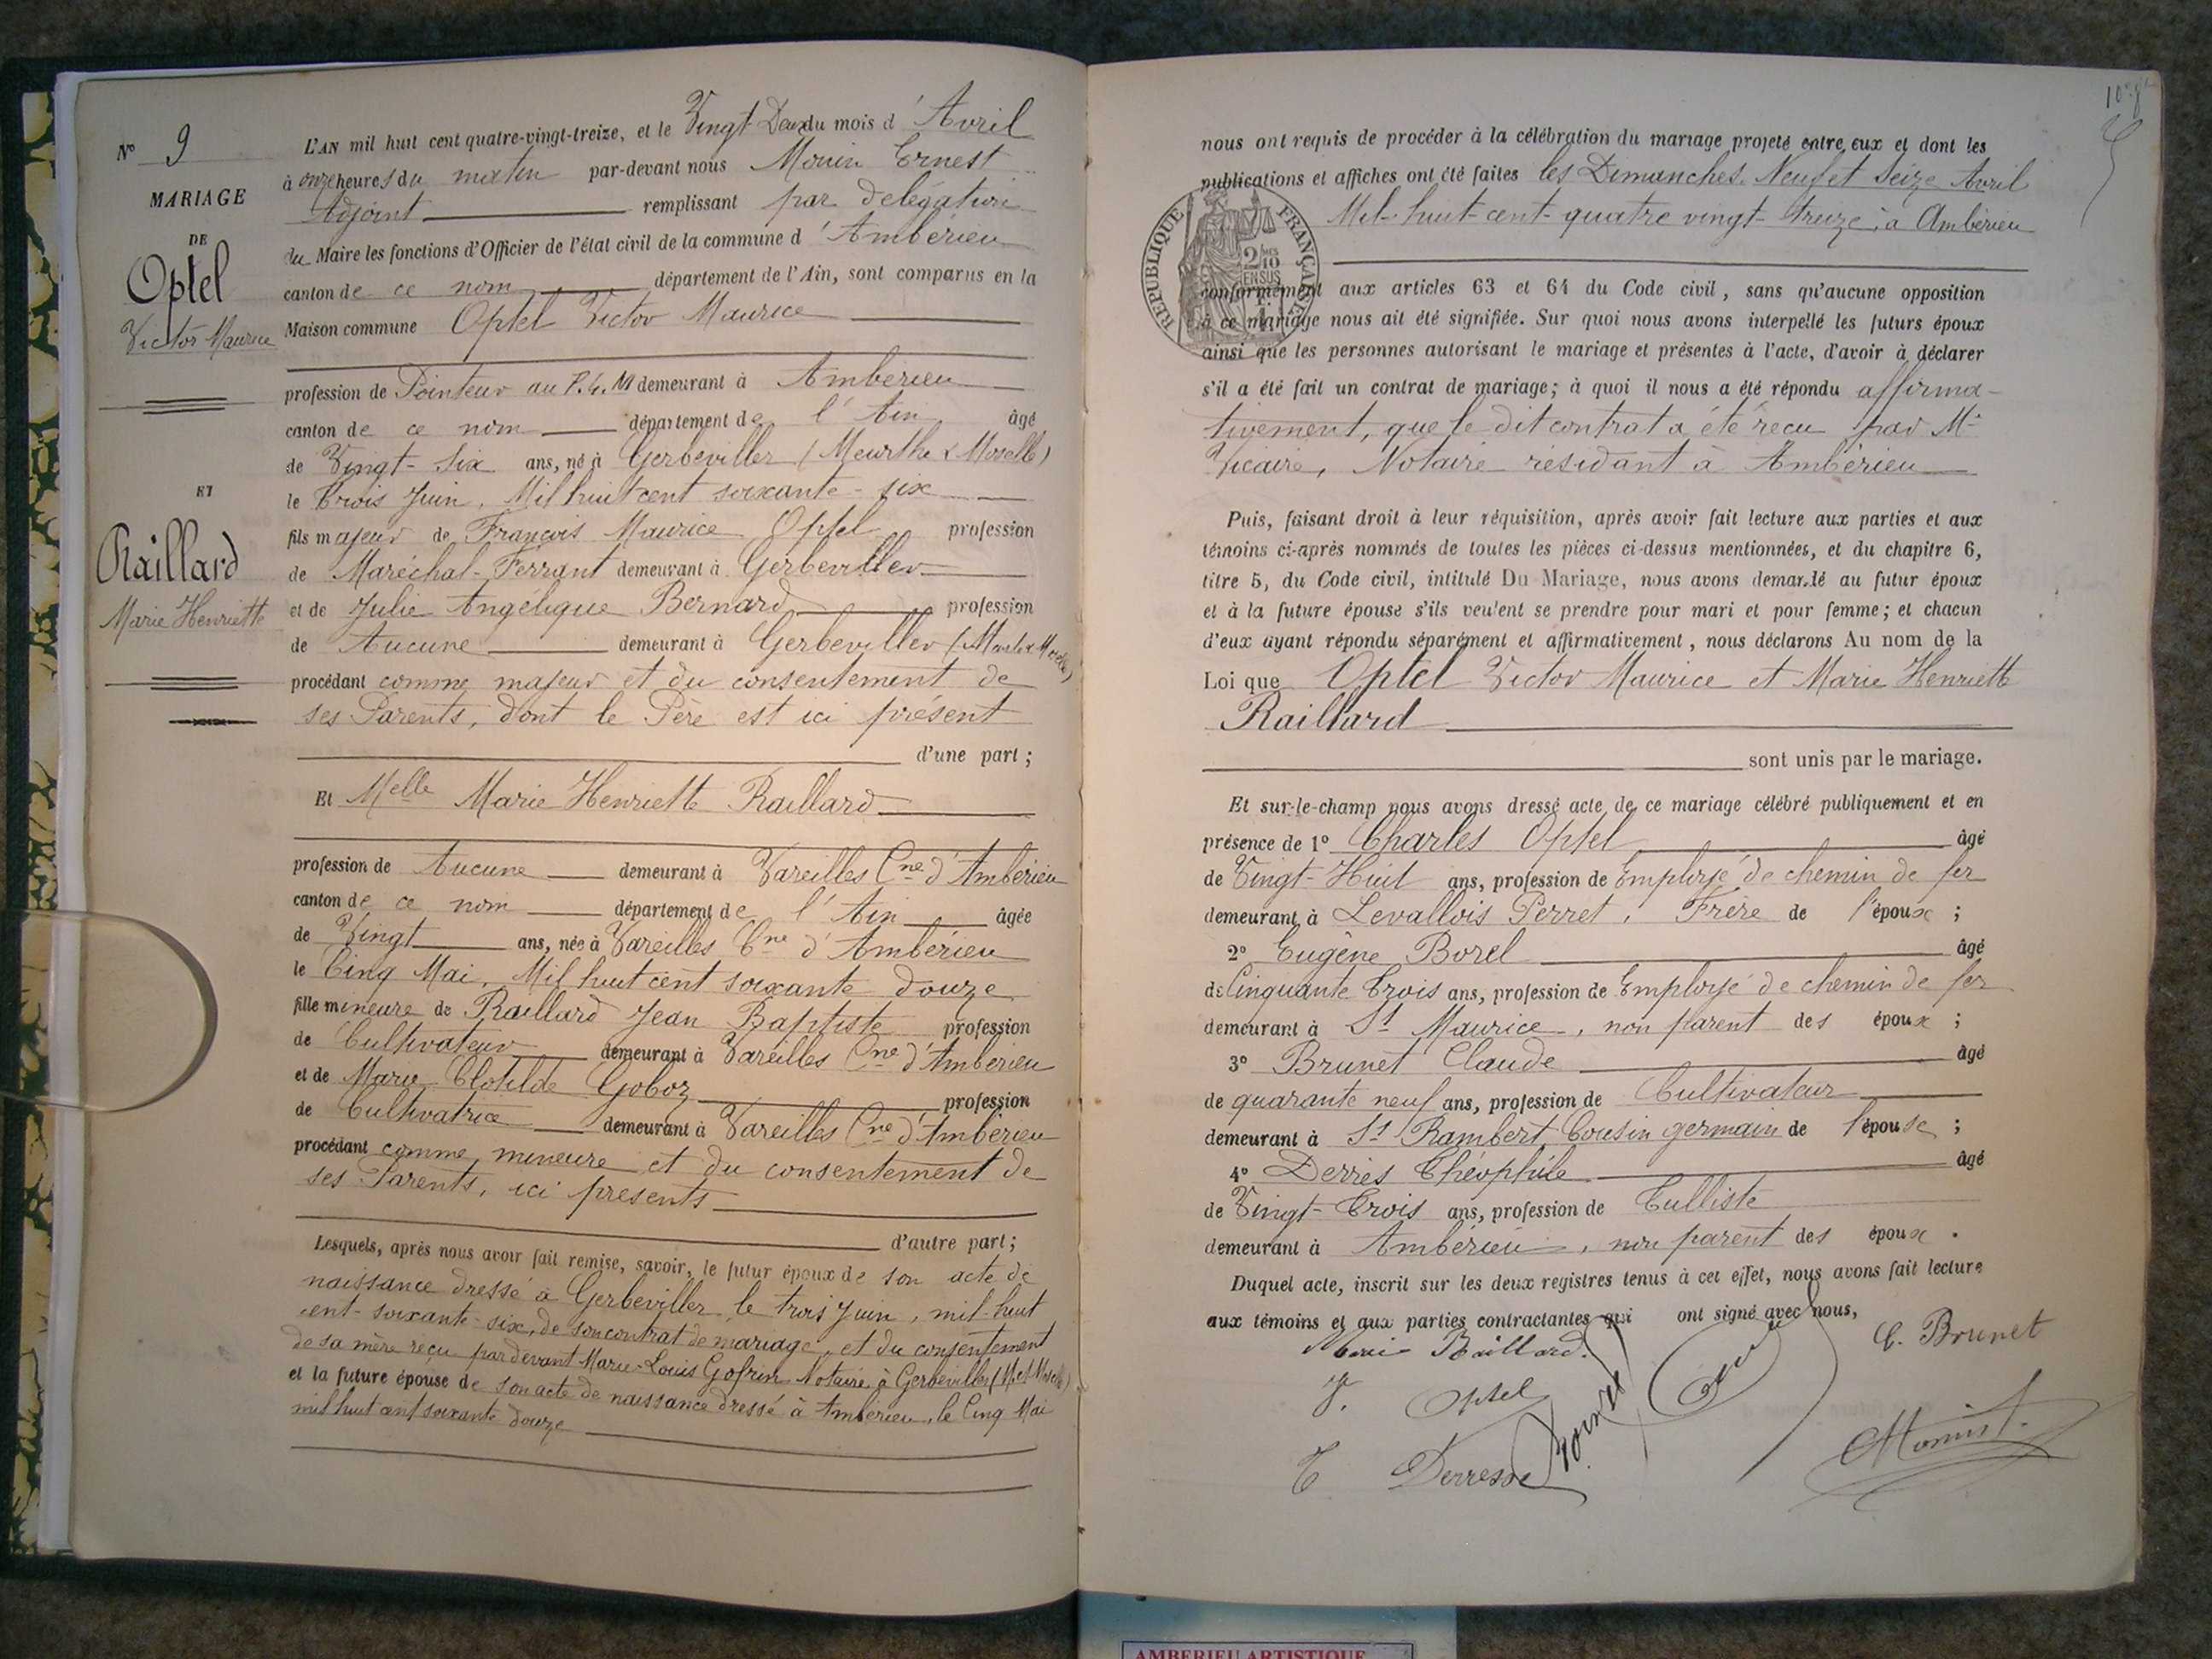 N° 9
MARIAGE
DE
Optel
Victor Maurice
ET
Raillard
Marie Henriette
L'AN mil huit cent quatre-vingt-treize, et le Vingt-Deux du mois d'Avril
à onze heures du matin par-devant nous Monin Ernest
Adjoint remplissant par délégation
du Maire les fonctions d'Officier de l'état civil de la commune d'Ambérieu
canton de ce nom département de l'Ain, sont comparus en la
Maison commune Optel Victor Maurice
profession de Pointeur au P.L.M demeurant à Ambérieu
canton de ce nom département de l'Ain âgé
de Vingt-Six ans, né à Gerbeviller (Meurthe & Moselle)
le Trois Juin, Mil huit cent soixante-six
fils majeur de François Maurice Optel profession
de Maréchal-Ferrant demeurant à Gerbeviller
et de Julie Angélique Bernard profession
de Aucune demeurant à Gerbeviller (Mrthe & Moselle)
procédant comme majeur et du consentement de
ses Parents, dont le Père est ici présent
d'une part;
Et Melle Marie Henriette Raillard
profession de Aucune demeurant à Vareilles Cne d'Ambérieu
canton de ce nom département de l'Ain âgée
de Vingt ans, née à Vareilles Cne d'Ambérieu
le Cinq Mai, Mil huit cent soixante douze
fille mineure de Raillard Jean Baptiste profession
de Cultivateur demeurant à Vareilles Cne d'Ambérieu
et de Marie Clotilde Goboz profession
de Cultivatrice demeurant à Vareilles Cne d'Ambérieu
procédant comme mineure et du consentement de
ses Parents, ici présents
d'autre part;
Lesquels, après nous avoir fait remise, savoir, le futur époux de son acte de
naissance dressé à Gerbeviller le trois Juin, mil-huit
cent-soixante-six, de son contrat de mariage, et du consentement
de sa mère reçu par devant Marie-Louis Gofrin Notaire à Gerbeviller (M et Moselle)
et la future épouse de son acte de naissance dressé à Ambérieu, le Cinq Mai
mil huit cent soixante douze
nous ont requis de procéder à la célébration du mariage projeté entre eux et dont les
publications et affiches ont été faites les Dimanches Neuf et Seize Avril
Mil-huit-cent-quatre vingt-treize, à Ambérieu
REPUBLIQUE FRANÇAISE
2/10
EN SUS
conformément aux articles 63 et 64 du Code civil, sans qu'aucune opposition
à ce mariage nous ait été signifiée. Sur quoi nous avons interpellé les futurs époux
ainsi que les personnes autorisant le mariage et présentes à l'acte, d'avoir à déclarer
s'il a été fait un contrat de mariage; à quoi il nous a été répondu affirma-
tivement, que le dit contrat a été reçu par Me
Vicaire, Notaire résidant à Ambérieu
Puis, faisant droit à leur réquisition, après avoir fait lecture aux parties et aux
témoins ci-après nommés de toutes les pièces ci-dessus mentionnées, et du chapitre 6,
titre 5, du Code civil, intitulé Du Mariage, nous avons demandé au futur époux
et à la future épouse s'ils veulent se prendre pour mari et pour femme; et chacun
d'eux ayant répondu séparément et affirmativement, nous déclarons Au nom de la
Loi que Optel Victor Maurice et Marie Henriette
Raillard
sont unis par le mariage.
Et sur-le-champ nous avons dressé acte de ce mariage célébré publiquement et en
présence de 1° Charles Optel âgé
de Vingt-Huit ans, profession de Employé de chemin de fer
demeurant à Levallois Perret, Frère de l'époux;
2° Eugène Borel âgé
de Cinquante Trois ans, profession de Employé de chemin de fer
demeurant à St Maurice, non parent des époux;
3° Brunet Claude âgé
de quarante neuf ans, profession de Cultivateur
demeurant à St Rambert Cousin germain de l'épouse;
4° Derriès Théophile âgé
de Vingt-Trois ans, profession de Tulliste
demeurant à Ambérieu, non parent des époux.
Duquel acte, inscrit sur les deux registres tenus à cet effet, nous avons fait lecture
aux témoins et aux parties contractantes qui ont signé avec nous,
Marie Raillard.
C. Brunet
V. Optel
AMBERIEU ARTISTIQUE